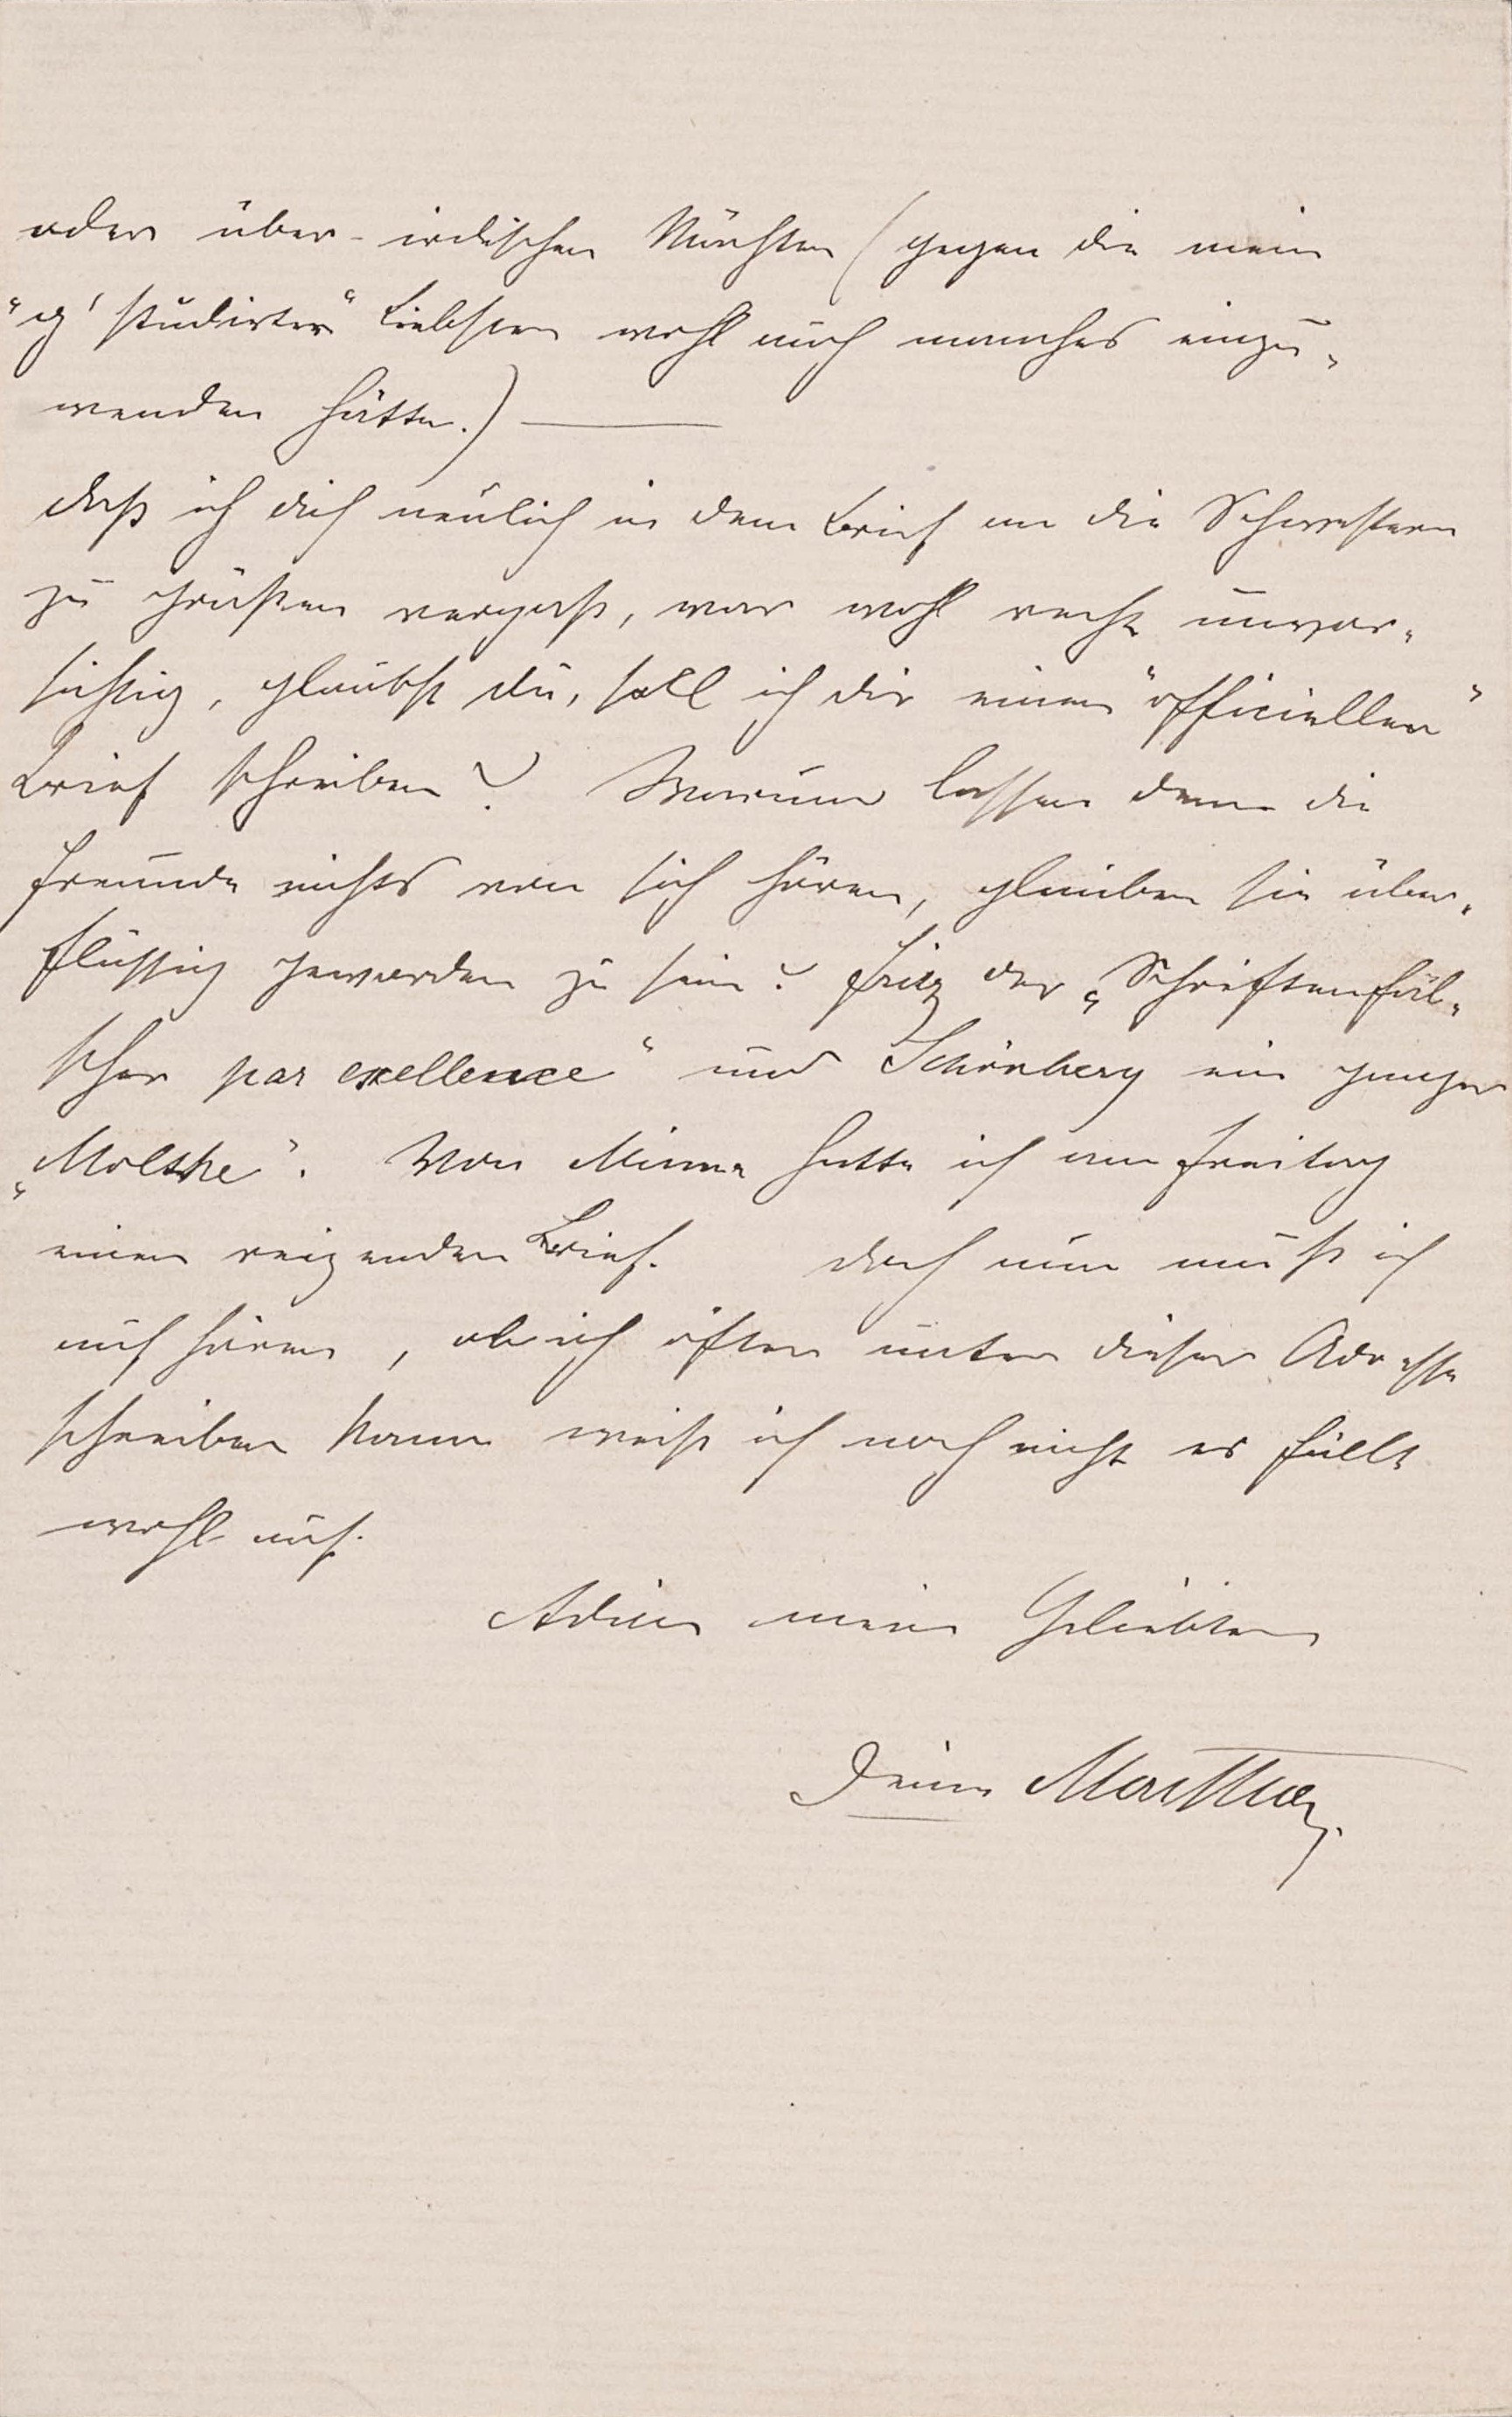 oder über-irdischen Mächten (gegen die mein
"g'studirter" Liebster wohl auch manches einzu-
wenden hätte.) —
daß ich dich neulich in dem Brief an die Schwestern
zu grüßen vergaß, war wohl recht unvor-
sichtig, glaubst du, soll ich dir einen "officiellen"
Brief schreiben? Warum lassen denn die
Freunde nichts von sich hören, glauben sie über-
flüssig geworden zu sein? Fritz der „Schriftenfäl-
scher par exellence" und Schönberg ein ganzer
„Moltke". Von Minna hatte ich am Freitag
einen reizenden Brief. doch nun muß ich
aufhören, ob ich öfter unter dieser Adresse
schreiben kann weiß ich noch nicht es fällt
wohl auf.
Adieu mein Geliebter
Deine Martha.